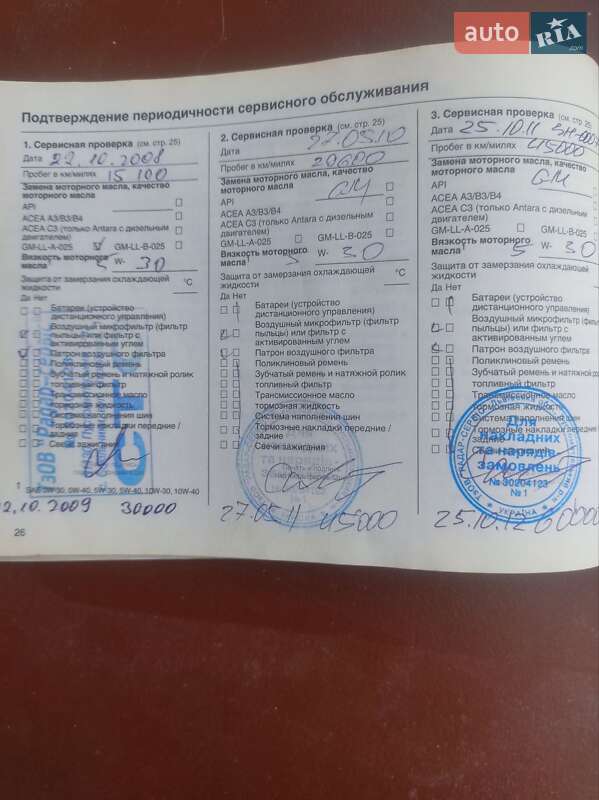 auto RIA.com
Подтверждение периодичности сервисного обслуживания
1. Сервисная проверка (см. стр. 25)
Дата 22.10.2008
Пробег в км/милях 15 100
Замена моторного масла, качество моторного масла
API
ACEA A3/B3/B4
ACEA C3 (только Antara с дизельным двигателем)
GM-LL-A-025 GM-LL-B-025
Вязкость моторного масла¹ 5 W- 30
Защита от замерзания охлаждающей жидкости °C
Да Нет
Батареи (устройство дистанционного управления)
Воздушный микрофильтр (фильтр пыльцы) или фильтр с активированным углем
Патрон воздушного фильтра
Поликлиновый ремень
Зубчатый ремень и натяжной ролик
топливный фильтр
Трансмиссионное масло
тормозная жидкость
Система наполнения шин
Тормозные накладки передние / задние
Свечи зажигания
1 SAE 5W-30, 0W-40, 5W-30, 5W-40, 10W-30, 10W-40
30000
26
2. Сервисная проверка (см. стр. 25)
Дата
Пробег в км/милях 29600
Замена моторного масла, качество моторного масла GM
API
ACEA A3/B3/B4
ACEA C3 (только Antara с дизельным двигателем)
GM-LL-A-025 GM-LL-B-025
Вязкость моторного масла¹ 5 W- 30
Защита от замерзания охлаждающей жидкости °C
Да Нет
Батареи (устройство дистанционного управления)
Воздушный микрофильтр (фильтр пыльцы) или фильтр с активированным углем
Патрон воздушного фильтра
Поликлиновый ремень
Зубчатый ремень и натяжной ролик
топливный фильтр
Трансмиссионное масло
тормозная жидкость
Система наполнения шин
Тормозные накладки передние / задние
Свечи зажигания
27.05.11 45000
3. Сервисная проверка (см. стр. 25)
Дата 25.10.11
Пробег в км/милях 45000
Замена моторного масла, качество моторного масла GM
API
ACEA A3/B3/B4
ACEA C3 (только Antara с дизельным двигателем)
GM-LL-A-025 GM-LL-B-025
Вязкость моторного масла¹ 5 W- 30
Защита от замерзания охлаждающей жидкости
Да Нет
Батареи (устройство дистанционного управления)
Воздушный микрофильтр (фильтр пыльцы) или фильтр с активированным углем
Патрон воздушного фильтра
Поликлиновый ремень
Зубчатый ремень и натяжной ролик
топливный фильтр
Трансмиссионное масло
Тормозная жидкость
Система наполнения шин
Тормозные накладки
Для
накладних
та нарядів
замовлень
№ 30204123
№ 1
УКРАЇНА
25.10.12 60000